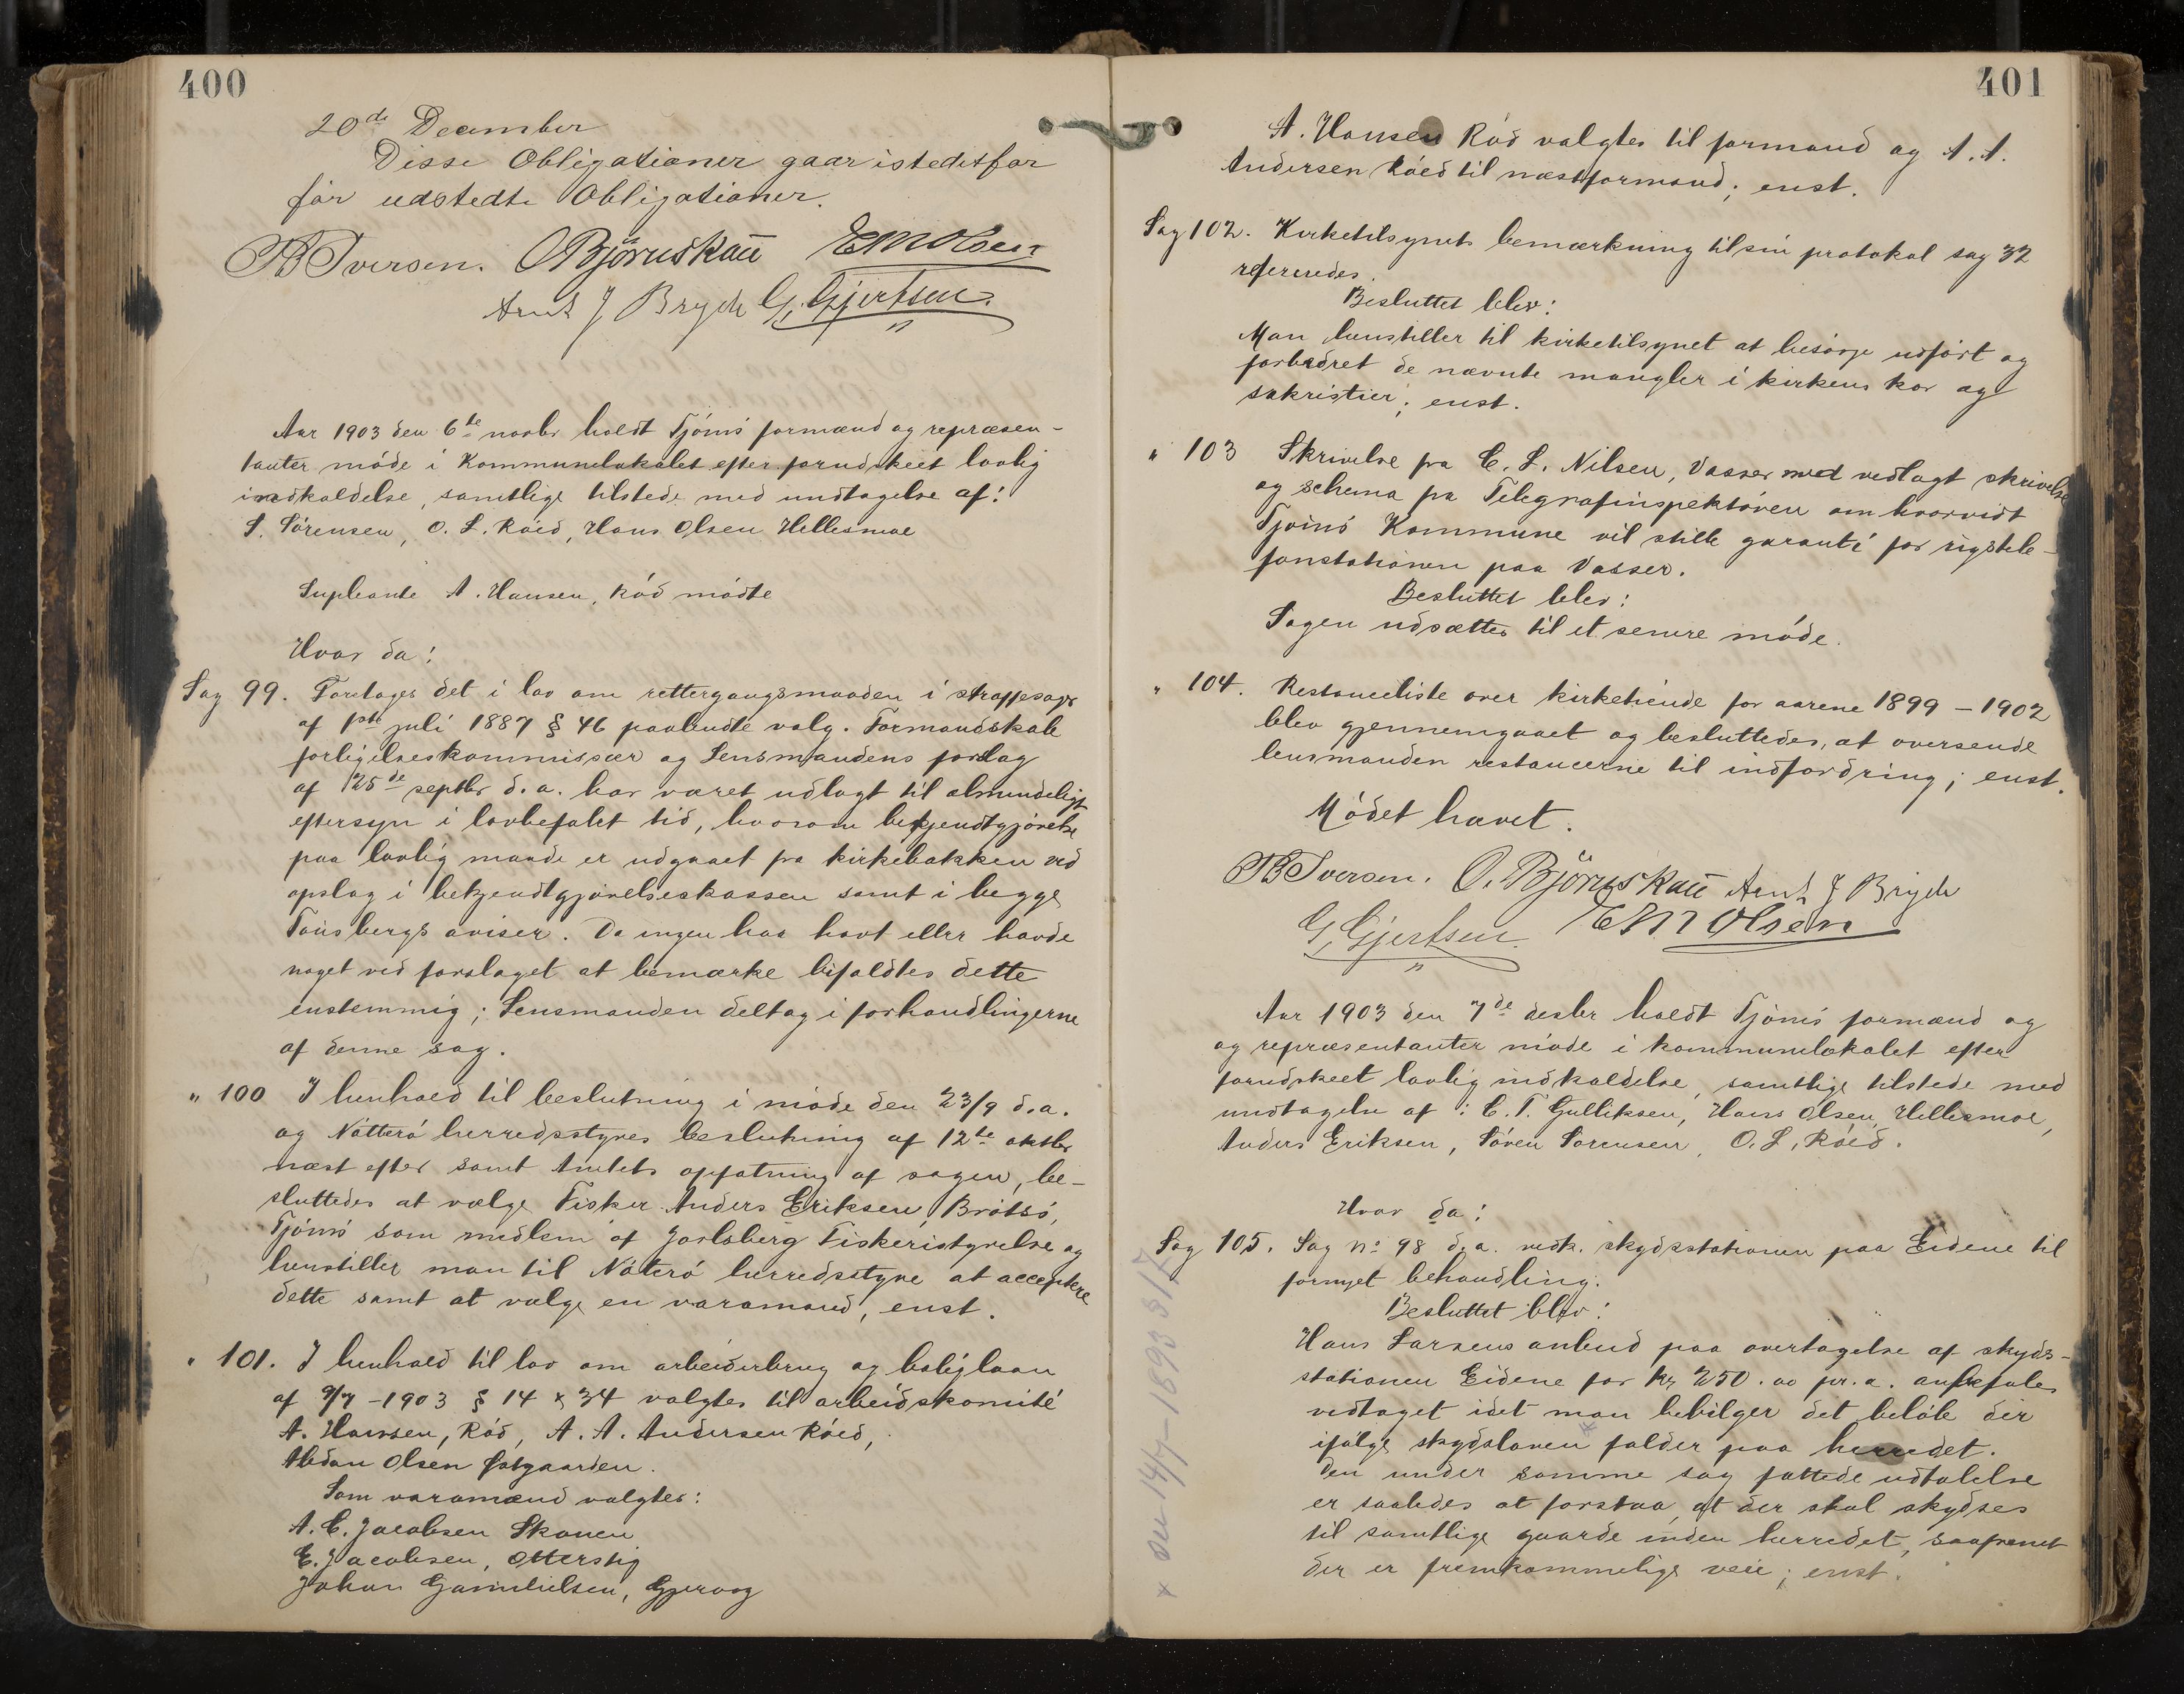 400
20de December
Disse Obligationer gaar istedetfor
før udstedte Obligationer.
B Iversen. O Bjørnskau E M Olsen
Arnt J Bryde G. Gjertsen.
Aar 1903 den 6te novbr holdt Tjømø formænd og repræsen-
tanter møde i Kommunelokalet efter forudskeet lovlig
indkaldelse, samtlige tilstede med undtagelse af:
S. Sørensen, O. L. Røed, Hans Olsen Hellesmoe
Supleante A. Hansen, Rød mødte
Hvor da:
Sag 99. Foretoges det i lov om rettergangsmaaden i straffesager
af 1ste juli 1887 § 46 paabudte valg. Formandskab
forligelseskommissær og Lensmandens forslag
af 25de septbr d. a. har været udlagt til almindeligt
eftersyn i lovbefalet tid, hvorom bekjendtgjørelse
paa lovlig maade er udgaaet fra kirkebakken ved
opslag i bekjendtgjørelseskassen samt i begge
Tønsbergs aviser. Da ingen har havt eller havde
noget ved forslaget at bemærke bifaldtes dette
enstemmig; Lensmanden deltog i forhandlingerne
af denne sag.
" 100 I henhold til beslutning i møde den 23/9 d. a.
og Nøtterø herredsstyres beslutning af 12te oktbr
næst efter samt Amtets opfatning af sagen, be-
sluttedes at vælge Fisker Anders Eriksen, Brøtsø,
Tjømø som medlem af Jarlsberg Fiskeristyrelse og
henstiller man til Nøterø herredsstyre at acceptere
dette samt at vælge en varamand, enst.
" 101. I henhold til lov om arbeiderbrug og boliglaan
af 9/7 - 1903 § 14 x 34 valgtes til arbeidskomité
A. Hansen, Rød, A. A. Andersen Røed,
Abdon Olsen Østgaarden.
Som varamænd valgtes:
A. C. Jacobsen Skauen
E. Jacobsen, Otterstig
Johan Gamlielsen, Gjervaag
401
A. Hansen Rød valgtes til formand og A. A.
Andersen Røed til næstformand; enst.
Sag 102. Kirketilsynets bemærkning til sin protokol sag 32
refereredes.
Besluttet blev:
Man henstiller til kirketilsynet at besørge udført og
forbedret de nævnte mangler i kirkens kor og
sakristier; enst.
" 103 Skrivelse fra C. L. Nilsen, Vasser med vedlagt skrivelse
og schema fra Telegrafinspektøren om hvorvidt
Tjømø Kommune vil stille garanti for rigstele-
fonstationen paa Vasser.
Besluttet blev:
Sagen udsættes til et senere møde.
" 104. Restanceliste over kirketiende for aarene 1899 - 1902
blev gjennemgaaet og besluttedes, at oversende
lensmanden restancerne til indfordring; enst.
Mødet hævet.
B Iversen. O. Bjørnskau Arnt J Bryde
G. Gjertsen. E M Olsen
Aar 1903 den 7de desbr holdt Tjømø formænd og
og repræsentanter møde i kommunelokalet efter
forudskeet lovlig indkaldelse, samtlige tilstede med
undtagelse af: C. T. Gulliksen, Hans Olsen, Hellesmoe,
Anders Eriksen, Søren Sørensen, O. L. Røed.
Hvor da:
Sag 105. Sag no 98 d. a. vedk. skydsstationen paa Eidene til
fornyet behandling.
Besluttet blev:
Hans Larsens anbud paa overtagelse af skyds-
stationen Eidene for kr 250.00 pr. a. anbefales
vedtaget idet man bevilger det beløb der
ifølge skydsloven x falder paa herredet.
Den under samme sag fattede udtalelse
er saaledes at forstaa, at der skal skydses
til samtlige gaarde inden herredet, saafremt
der er fremkommelige veie; enst.
x Lov 14/7 - 1893 § 17